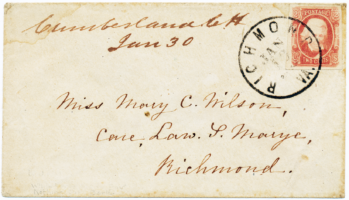 Cumberland C H
Jan 30
RICHMOND VA.
JAN
Miss Mary C. Wilson,
Care, Law. S. Marye,
Richmond.